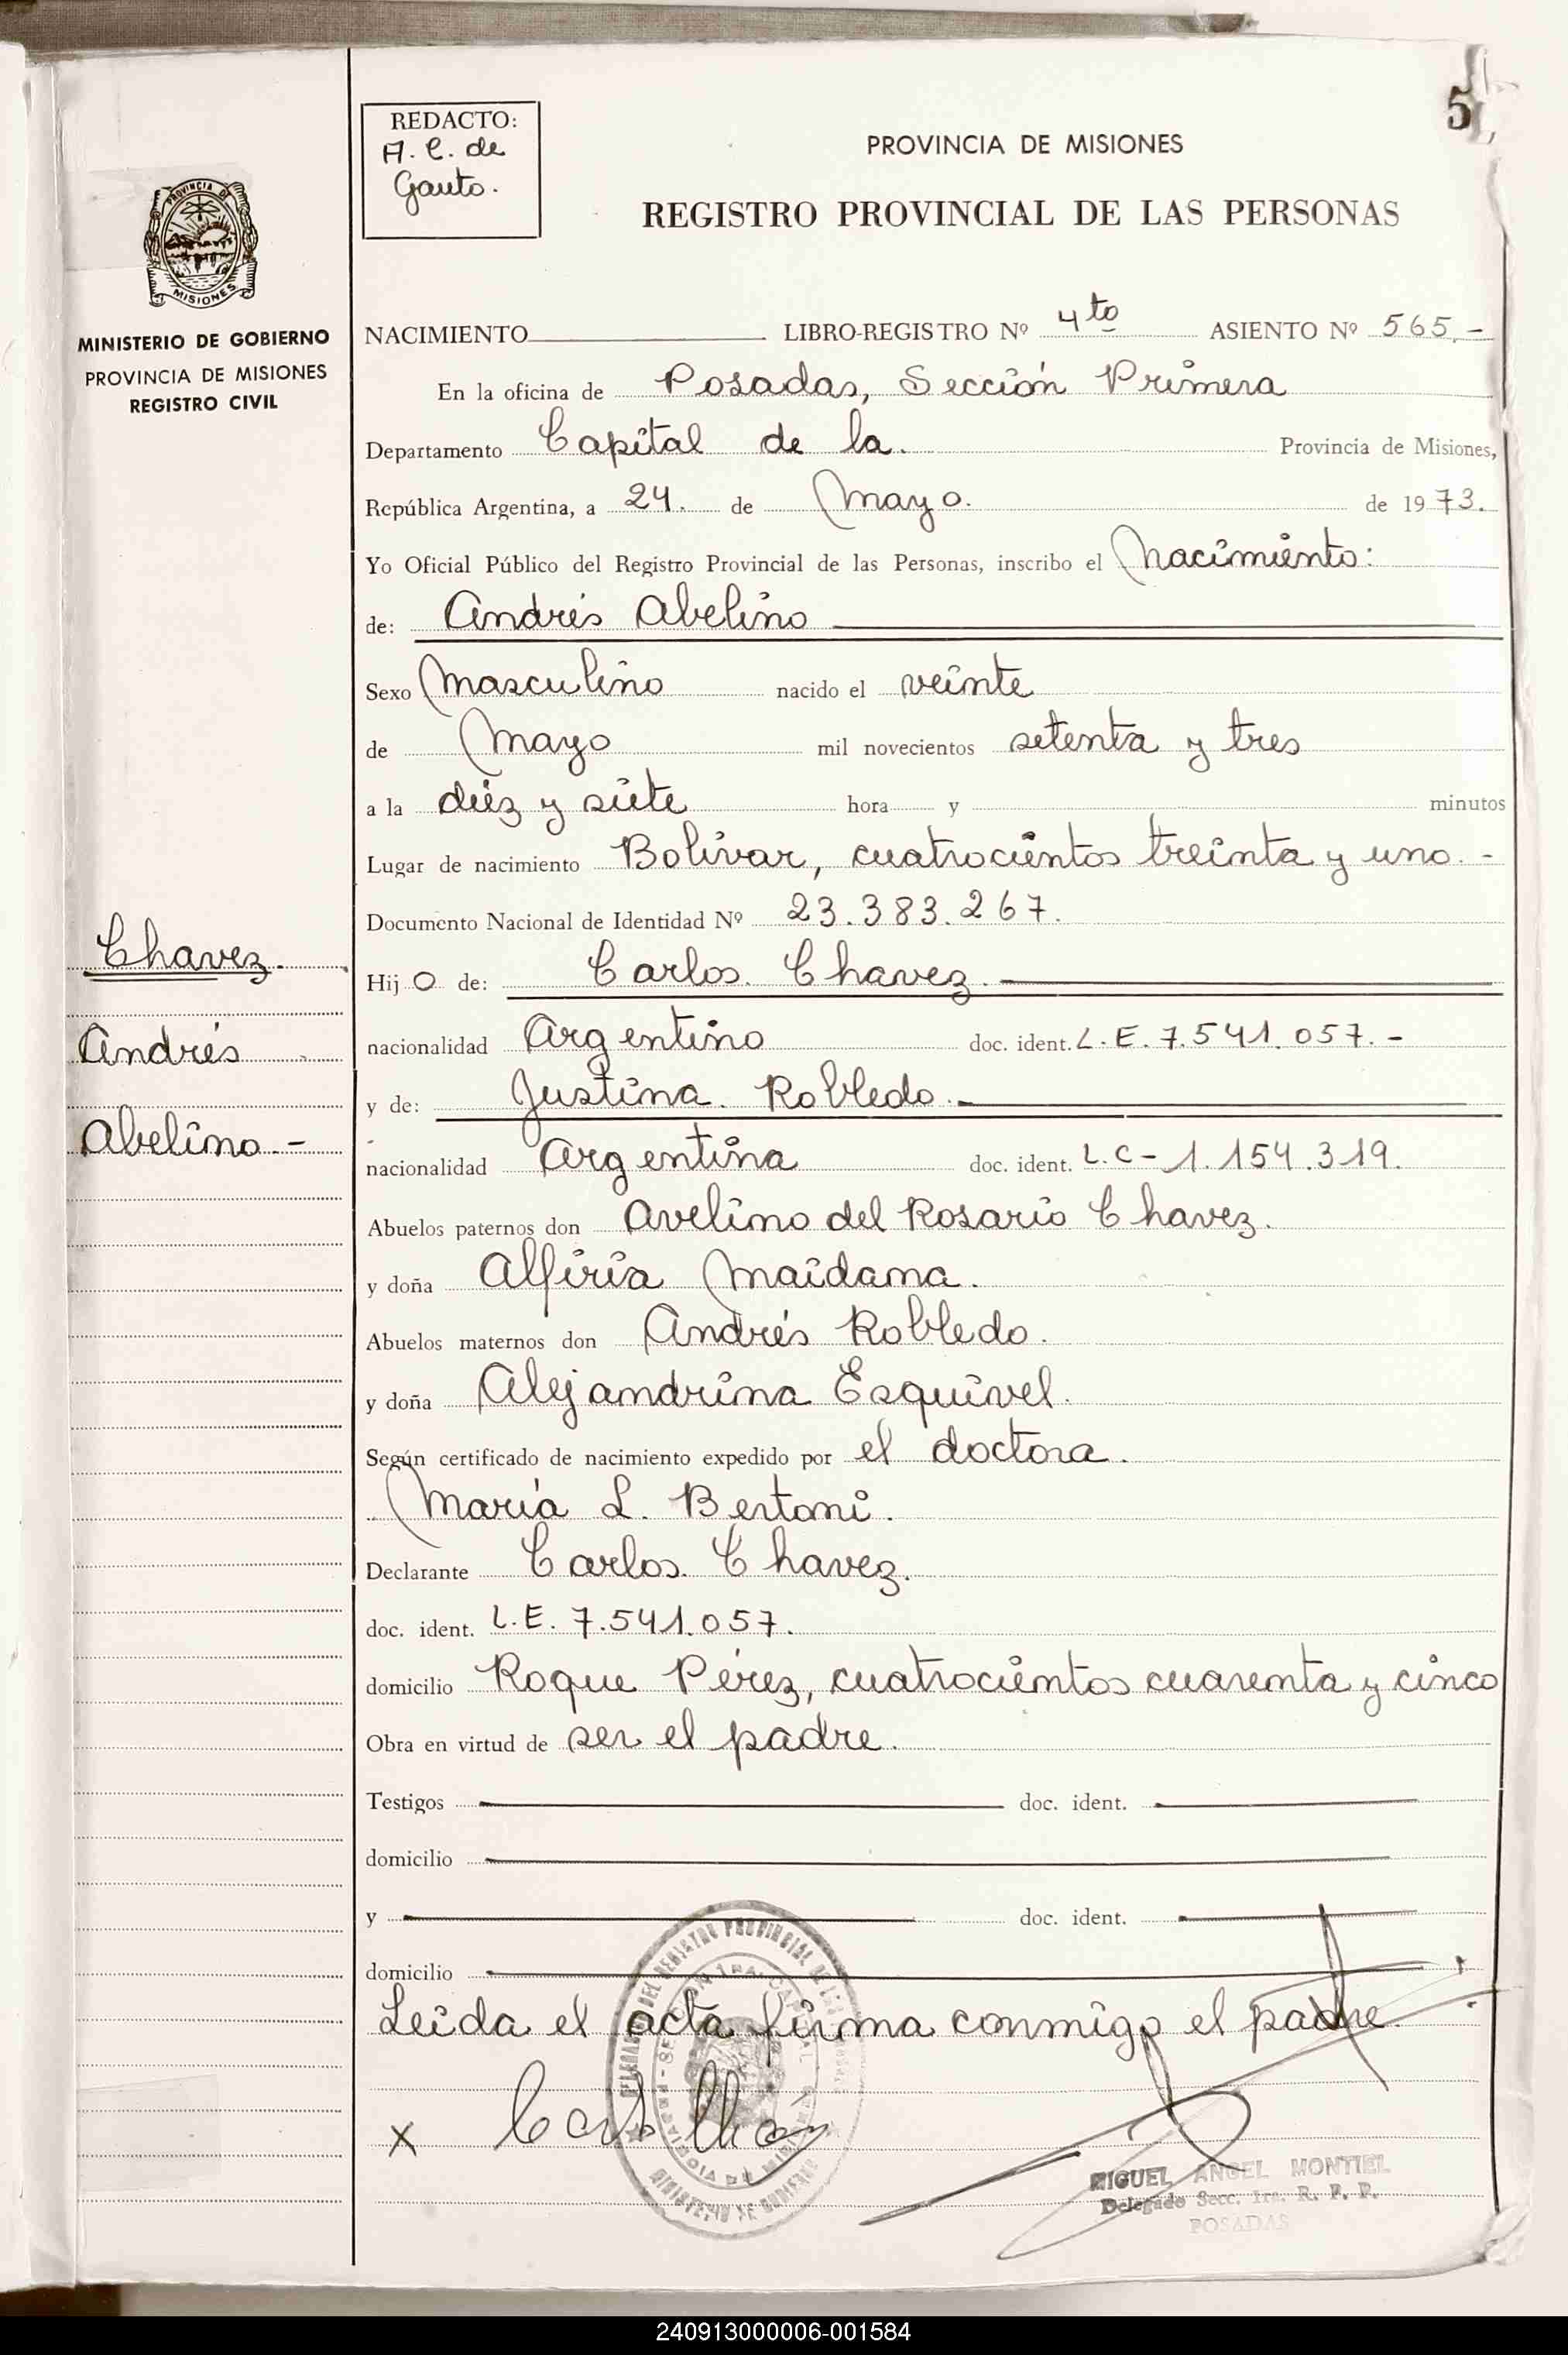 5
REDACTO:
A. C. de
Gauto.
PROVINCIA DE MISIONES
REGISTRO PROVINCIAL DE LAS PERSONAS
PROVINCIA DE
MISIONES
MINISTERIO DE GOBIERNO
PROVINCIA DE MISIONES
REGISTRO CIVIL
NACIMIENTO LIBRO-REGISTRO Nº 4to ASIENTO Nº 565.-
En la oficina de Posadas, Sección Primera
Departamento Capital de la. Provincia de Misiones,
República Argentina, a 24. de Mayo. de 1973.
Yo Oficial Público del Registro Provincial de las Personas, inscribo el Nacimiento:
de: Andrés Abelino
Sexo Masculino nacido el veinte
de Mayo mil novecientos setenta y tres
a la diez y siete hora y minutos
Lugar de nacimiento Bolivar, cuatrocientos treinta y uno. -
Documento Nacional de Identidad Nº 23.383.267.
Chavez.
Hij o de: Carlos. Chavez.
Andrés
nacionalidad Argentino doc. ident. L.E. 7.541.057. -
y de: Justina. Robledo.
Abelino -
nacionalidad Argentina doc. ident. L.C - 1.154.319.
Abuelos paternos don Avelino del Rosario Chavez.
y doña Alfiria Maidana.
Abuelos maternos don Andrés Robledo.
y doña Alejandrina Esquivel.
Según certificado de nacimiento expedido por el doctora.
María L. Bertoni.
Declarante Carlos. Chavez.
doc. ident. L.E. 7.541.057.
domicilio Roque Pérez, cuatrocientos cuarenta y cinco
Obra en virtud de ser el padre.
Testigos doc. ident.
domicilio
y doc. ident.
domicilio
Leida el acta firma conmigo el padre.
X
MIGUEL ANGEL MONTIEL
Delegado Secc. 1ra. R. P. P.
POSADAS
240913000006-001584